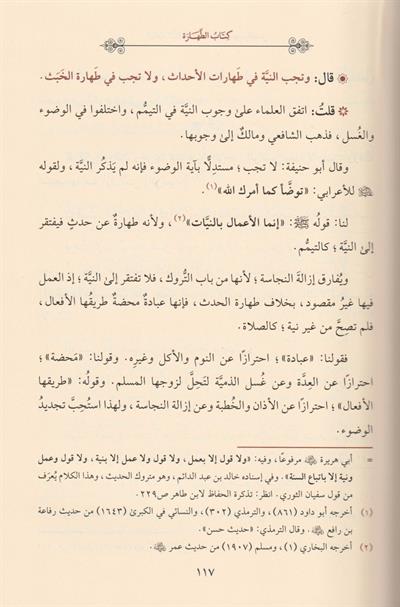 كِتَابُ الطَّهَارَة
قال: وتجب النيَّة في طَهارات الأحداث، ولا تجب في طَهارة الخَبَث.
قلتُ: اتفق العلماء على وجوب النيَّة في التيمُّم، واختلفوا في الوضوء
والغُسل، فذهب الشافعي ومالكٌ إلى وجوبها.
وقال أبو حنيفة: لا تجب؛ مستدِلًّا بآية الوضوء فإنه لم يَذكُر النيَّة، ولقوله
ﷺ للأعرابي: «توضَّأ كما أمرك الله»(١).
لنا: قولُه ﷺ: «إنما الأعمال بالنيَّات»(٢)، ولأنه طهارةٌ عن حدثٍ فيفتقر
إلى النيَّة؛ كالتيمُّم.
ويُفارق إزالةَ النجاسة؛ لأنها من باب التُّروك، فلا تفتقر إلى النيَّة؛ إذ العمل
فيها غيرُ مقصود، بخلاف طهارة الحدث، فإنها عبادةٌ محضةٌ طريقُها الأفعال،
فلم تصِحَّ من غير نية؛ كالصلاة.
فقولنا: «عبادة»؛ احترازًا عن النوم والأكل وغيرِه. وقولنا: «مَحضة»؛
احترازًا عن العِدَّة وعن غُسل الذميَّة لتَحِلَّ لزوجها المسلم. وقولُه: «طريقها
الأفعال»؛ احترازًا عن الأذان والخُطبة وعن إزالة النجاسة، ولهذا استُحِبَّ تجديدُ
الوضوء.
= أبي هريرة ﵁ مرفوعًا، وفيه: «ولا قول إلا بعمل، ولا قول ولا عمل إلا بنية، ولا قول وعمل
ونية إلا باتباع السنة». وفي إسناده خالد بن عبد الدائم، وهو متروك الحديث، وهذا الكلام يُعرَف
من قول سفيان الثوري. انظر: تذكرة الحفاظ لابن طاهر ص٢٢٩.
(١) أخرجه أبو داود (٨٦١)، والترمذي (٣٠٢)، والنسائي في الكبرى (١٦٤٣) من حديث رفاعة
بن رافع ﵁. وقال الترمذي: «حديث حسن».
(٢) أخرجه البخاري (١)، ومسلم (١٩٠٧) من حديث عمر ﵁.
١١٧